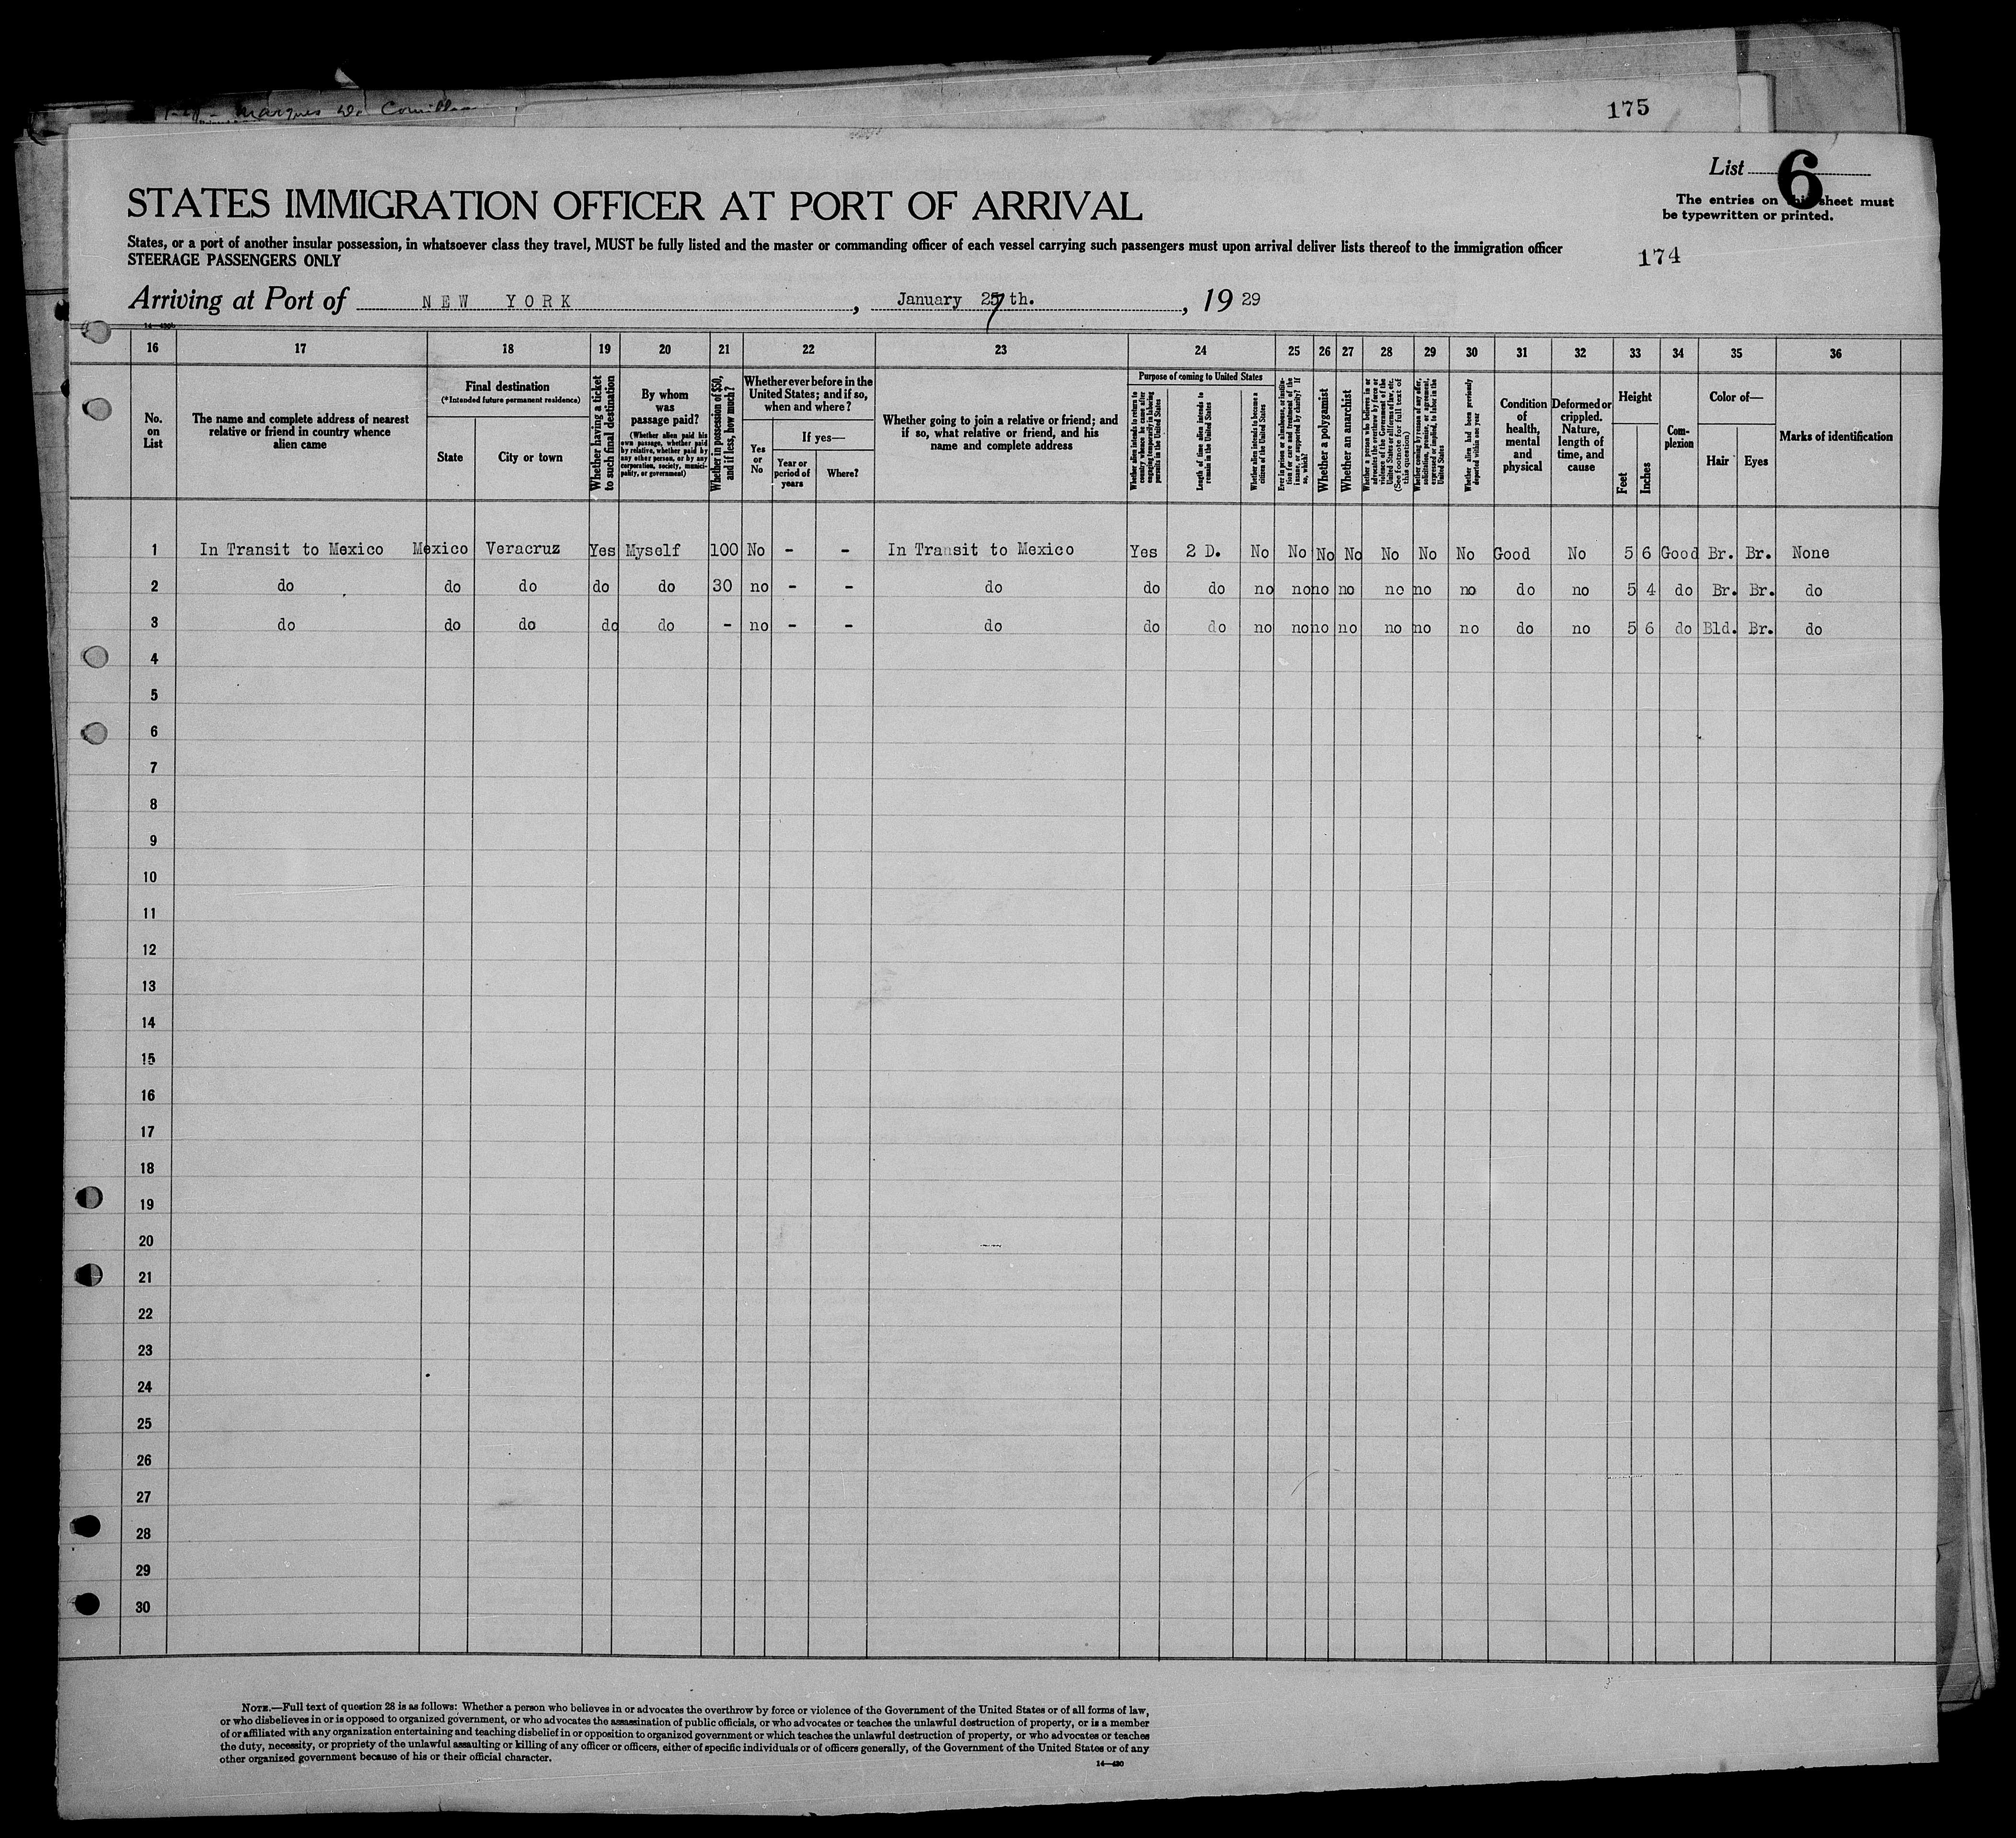 Marques de Comillas
175
List 6
The entries on this sheet must
be typewritten or printed.
STATES IMMIGRATION OFFICER AT PORT OF ARRIVAL
States, or a port of another insular possession, in whatsoever class they travel, MUST be fully listed and the master or commanding officer of each vessel carrying such passengers must upon arrival deliver lists thereof to the immigration officer
STEERAGE PASSENGERS ONLY
174
Arriving at Port of NEW YORK, January 27th., 1929
14—430b
16 17 18 19 20 21 22 23 24 25 26 27 28 29 30 31 32 33 34 35 36
No. on List
The name and complete address of nearest relative or friend in country whence alien came
Final destination
(*Intended future permanent residence)
State
City or town
Whether having a ticket to such final destination
By whom was passage paid?
(Whether alien paid his own passage, whether paid by relative, whether paid by any other person, or by any corporation, society, municipality, or government)
Whether in possession of $50, and if less, how much?
Whether ever before in the United States; and if so, when and where?
Yes or No
If yes—
Year or period of years
Where?
Whether going to join a relative or friend; and if so, what relative or friend, and his name and complete address
Purpose of coming to United States
Whether alien intends to return to country whence he came after engaging temporarily in laboring pursuits in the United States
Length of time alien intends to remain in the United States
Whether alien intends to become a citizen of the United States
Ever in prison or almshouse, or institution for care and treatment of the insane, or supported by charity? If so, which?
Whether a polygamist
Whether an anarchist
Whether a person who believes in or advocates the overthrow by force or violence of the Government of the United States or all forms of law, etc. (See footnote for full text of this question)
Whether coming by reason of any offer, solicitation, promise, or agreement, expressed or implied, to labor in the United States
Whether alien had been previously deported within one year
Condition of health, mental and physical
Deformed or crippled. Nature, length of time, and cause
Height
Feet
Inches
Complexion
Color of—
Hair
Eyes
Marks of identification
1 In Transit to Mexico Mexico Veracruz Yes Myself 100 No - - In Transit to Mexico Yes 2 D. No No No No No No No Good No 5 6 Good Br. Br. None
2 do do do do do 30 no - - do do do no no no no no no no do no 5 4 do Br. Br. do
3 do do do do do - no - - do do do no no no no no no no do no 5 6 do Bld. Br. do
4
5
6
7
8
9
10
11
12
13
14
15
16
17
18
19
20
21
22
23
24
25
26
27
28
29
30
NOTE.—Full text of question 28 is as follows: Whether a person who believes in or advocates the overthrow by force or violence of the Government of the United States or of all forms of law,
or who disbelieves in or is opposed to organized government, or who advocates the assassination of public officials, or who advocates or teaches the unlawful destruction of property, or is a member
of or affiliated with any organization entertaining and teaching disbelief in or opposition to organized government or which teaches the unlawful destruction of property, or who advocates or teaches
the duty, necessity, or propriety of the unlawful assaulting or killing of any officer or officers, either of specific individuals or of officers generally, of the Government of the United States or of any
other organized government because of his or their official character.
14—430